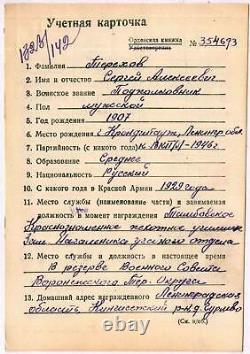 1223/142
Учетная карточка
Орденская книжка
Удостоверение № 354693
1. Фамилия Терехов
2. Имя и отчество Сергей Алексеевич
3. Воинское звание Подполковник
4. Пол мужской
5. Год рождения 1907
6. Место рождения г. Кронштадт, Ленингр. обл.
7. Партийность (с какого года) к ВКП(б) - 1946 г.
8. Образование Среднее
9. Национальность Русский
10. С какого года в Красной Армии 1929 года
11. Место службы (наименование части) и занимаемая
должность в момент награждения Тамбовское
Краснознаменное пехотное училище
Зам. Начальника учебного отдела
12. Место службы и должность в настоящее время
В резерве Военного Совета
Воронежского Тер. Округа
13. Домашний адрес награжденного Ленинградская
область, Кингисеппский р-н, д.
(См. н/об.)
ebay